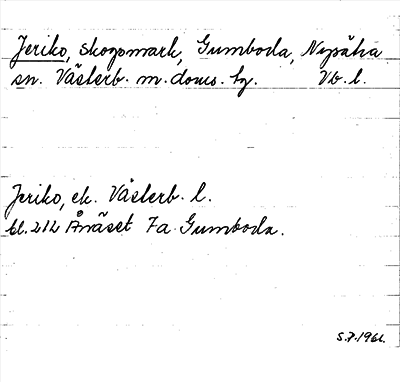 Jeriko, skogsmark, Gumboda, Nysätra
sn. Västerb. m. doms. hg. Vb. l.
Jeriko, ek. Västerb. l.
bl. 212 Ånäset 7a Gumboda.
S.F. 1961.